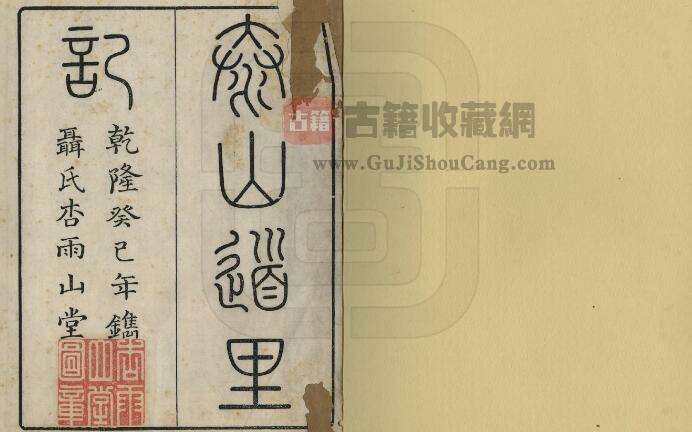 泰山道里
記
乾隆癸巳年鐫
聶氏杏雨山堂
杏雨
山堂
圖章
古籍
古籍收藏網
www.GuJiShouCang.com